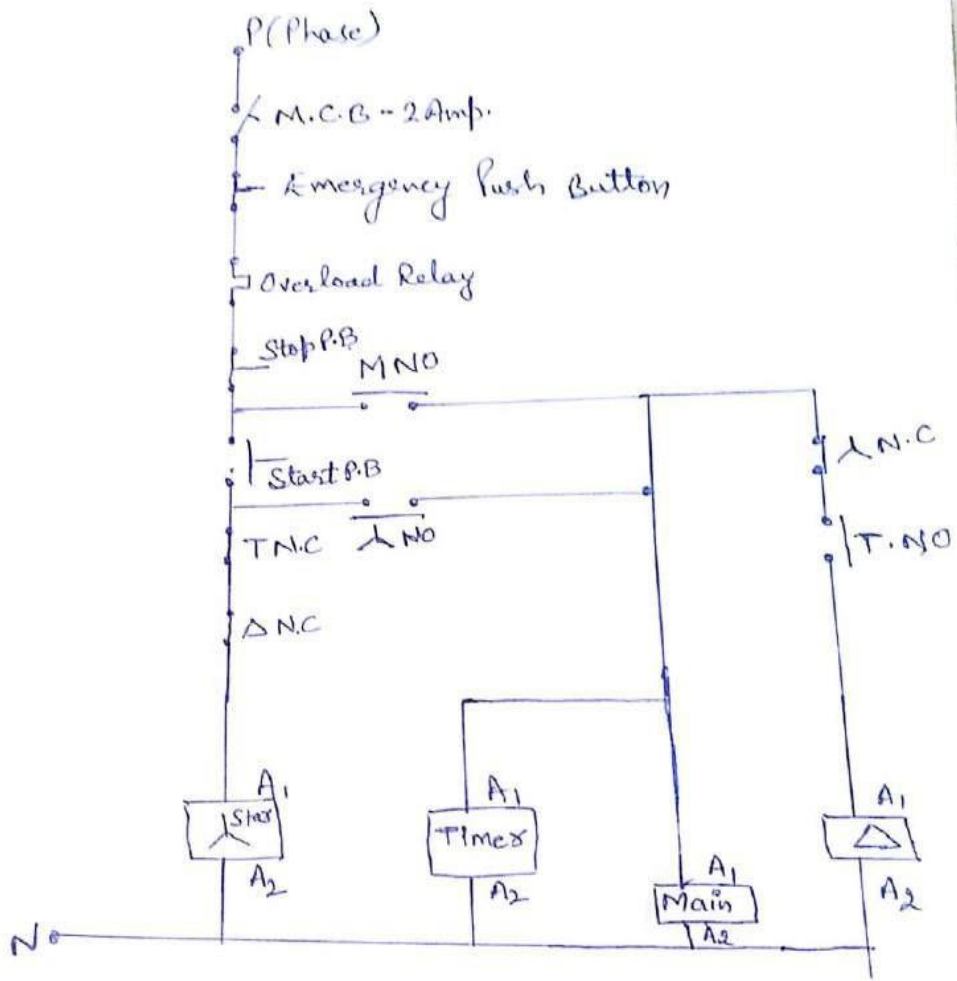 P(Phase)
M.C.B - 2 Amp.
Emergency Push Button
Overload Relay
Stop P.B
MNO
λ N.C
Start P.B
T N.C
λ NO
T.NO
Δ N.C
A1
Star
A2
A1
Timer
A2
A1
Main
A2
A1
Δ
A2
N